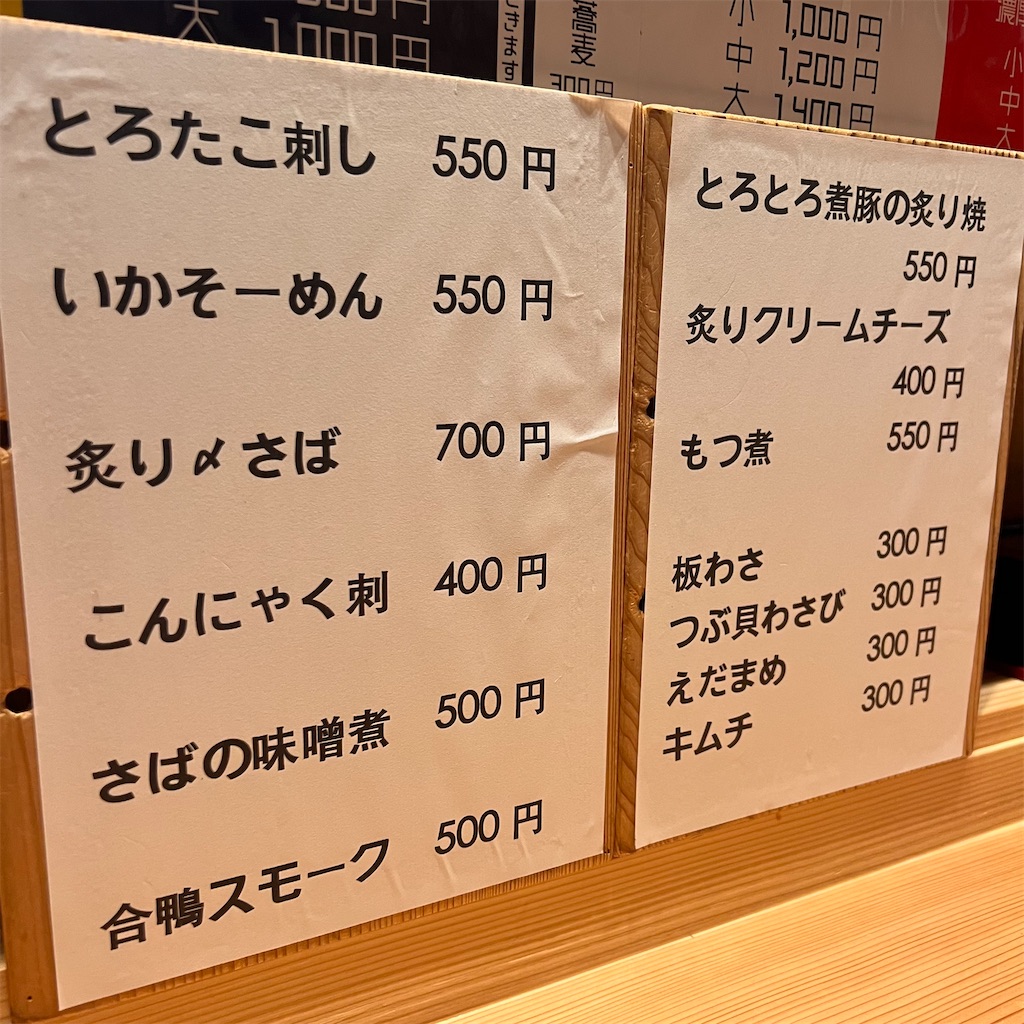 大 1,000円
きます
蕎麦
300円
小 1,000円
中 1,200円
大 1,400円
小
中
大
とろたこ刺し 550円
いかそーめん 550円
炙り〆さば 700円
こんにゃく刺 400円
さばの味噌煮 500円
合鴨スモーク 500円
とろとろ煮豚の炙り焼
550円
炙りクリームチーズ
400円
もつ煮 550円
板わさ 300円
つぶ貝わさび 300円
えだまめ 300円
キムチ 300円